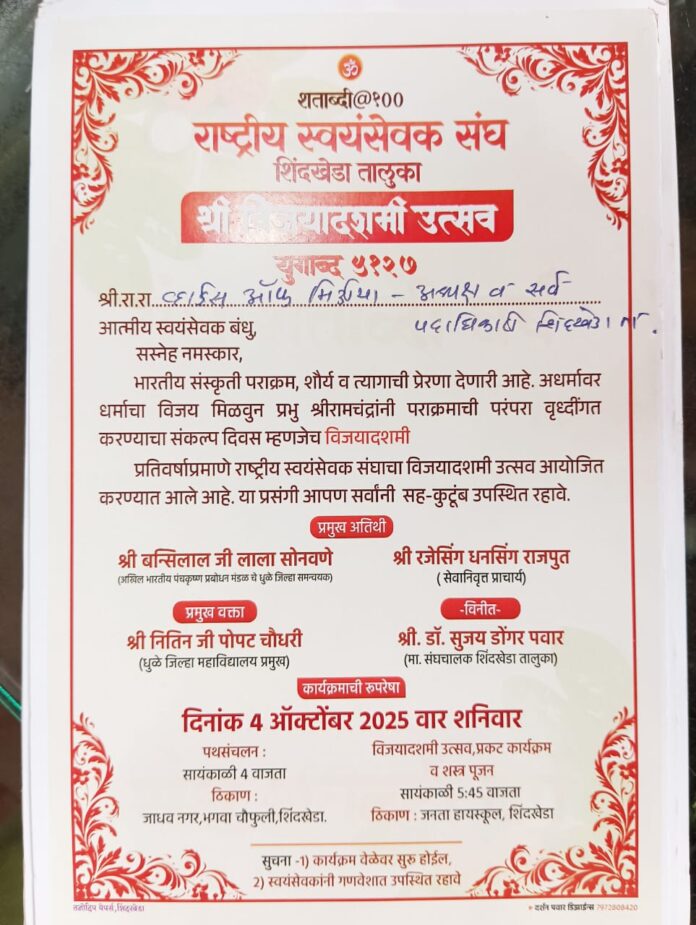 ॐ
शताब्दी@१००
राष्ट्रीय स्वयंसेवक संघ
शिंदखेडा तालुका
श्री विजयादशमी उत्सव
युगाब्द ५१२७
श्री.रा.रा व्हाईस ऑफ मिडीया - अध्यक्ष व सर्व
पदाधिकारी शिंदखेडा ता.
आत्मीय स्वयंसेवक बंधु,
सस्नेह नमस्कार,
भारतीय संस्कृती पराक्रम, शौर्य व त्यागाची प्रेरणा देणारी आहे. अधर्मावर
धर्माचा विजय मिळवुन प्रभु श्रीरामचंद्रांनी पराक्रमाची परंपरा वृध्दींगत
करण्याचा संकल्प दिवस म्हणजेच विजयादशमी
प्रतिवर्षाप्रमाणे राष्ट्रीय स्वयंसेवक संघाचा विजयादशमी उत्सव आयोजित
करण्यात आले आहे. या प्रसंगी आपण सर्वांनी सह-कुटूंब उपस्थित रहावे.
प्रमुख अतिथी
श्री बन्सिलाल जी लाला सोनवणे
(अखिल भारतीय पंचकृष्ण प्रबोधन मंडळ चे धुळे जिल्हा समन्वयक)
श्री रजेसिंग धनसिंग राजपुत
( सेवानिवृत्त प्राचार्य)
प्रमुख वक्ता
श्री नितिन जी पोपट चौधरी
(धुळे जिल्हा महाविद्यालय प्रमुख)
-विनीत-
श्री. डॉ. सुजय डोंगर पवार
(मा. संघचालक शिंदखेडा तालुका)
कार्यक्रमाची रुपरेषा
दिनांक 4 ऑक्टोंबर 2025 वार शनिवार
पथसंचलन :
सायंकाळी 4 वाजता
ठिकाण :
जाधव नगर,भगवा चौफुली,शिंदखेडा.
विजयादशमी उत्सव,प्रकट कार्यक्रम
व शस्त्र पूजन
सायंकाळी 5:45 वाजता
ठिकाण : जनता हायस्कूल, शिंदखेडा
सुचना -1) कार्यक्रम वेळेवर सुरु होईल,
2) स्वयंसेवकांनी गणवेशात उपस्थित रहावे
पेपर्स,शिंदखेडा
दर्शन पवार डिझाईन्स 7972808420